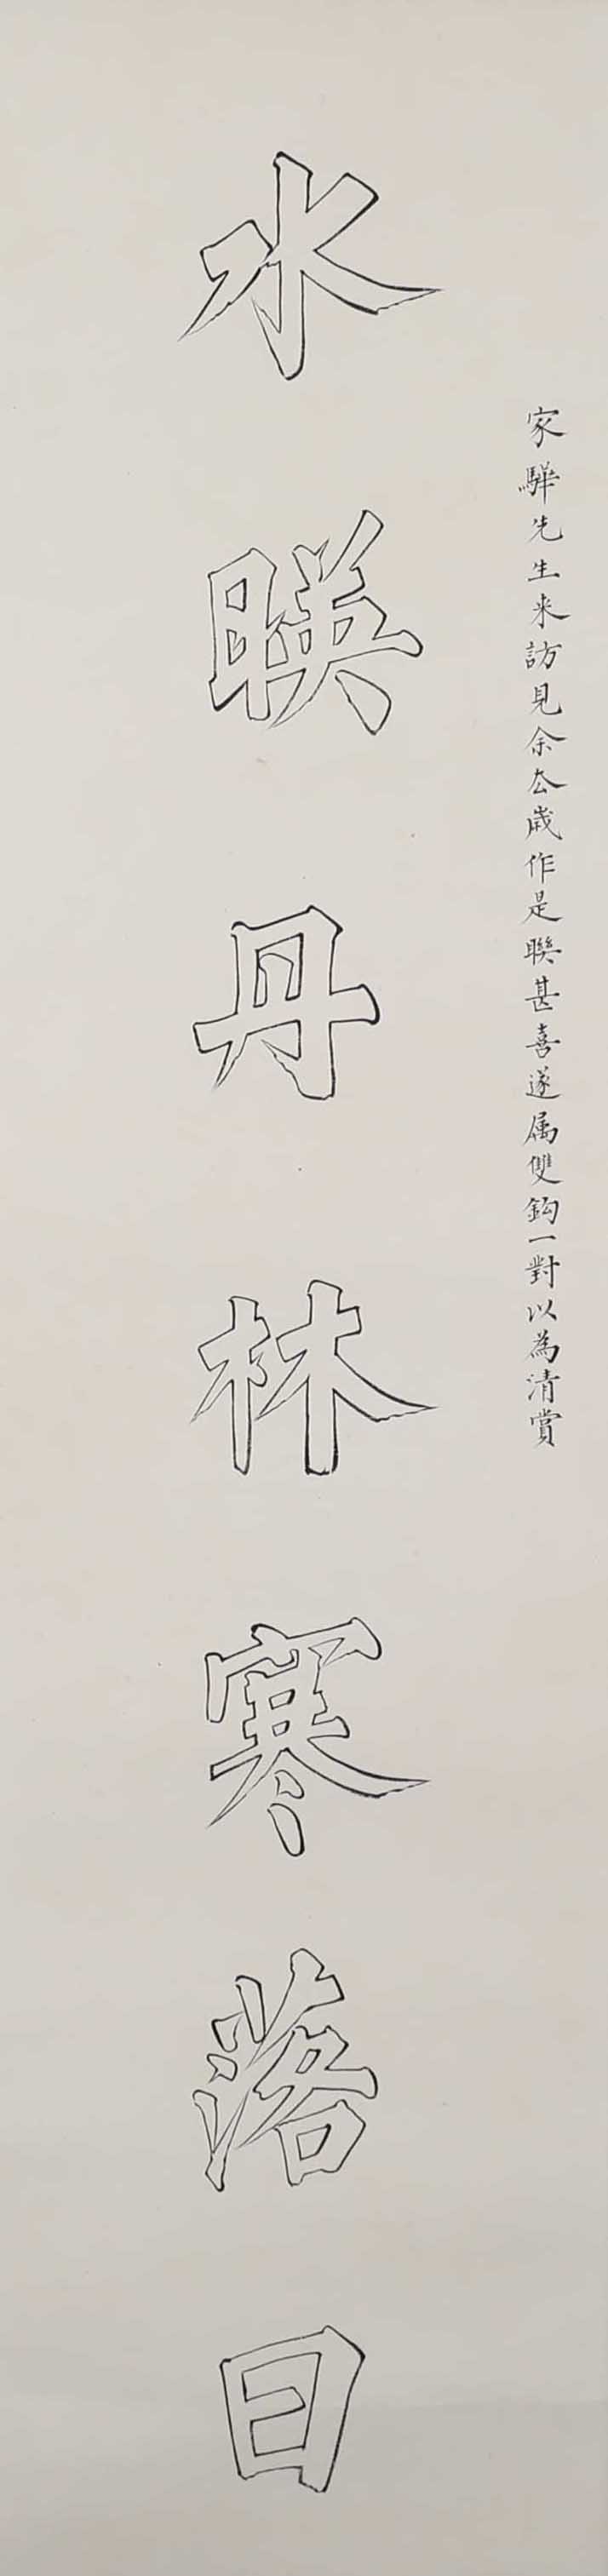 家驊先生来訪見余厺歳作是聮甚喜遂属雙鈎一對以為清賞
水暎丹林寒落日